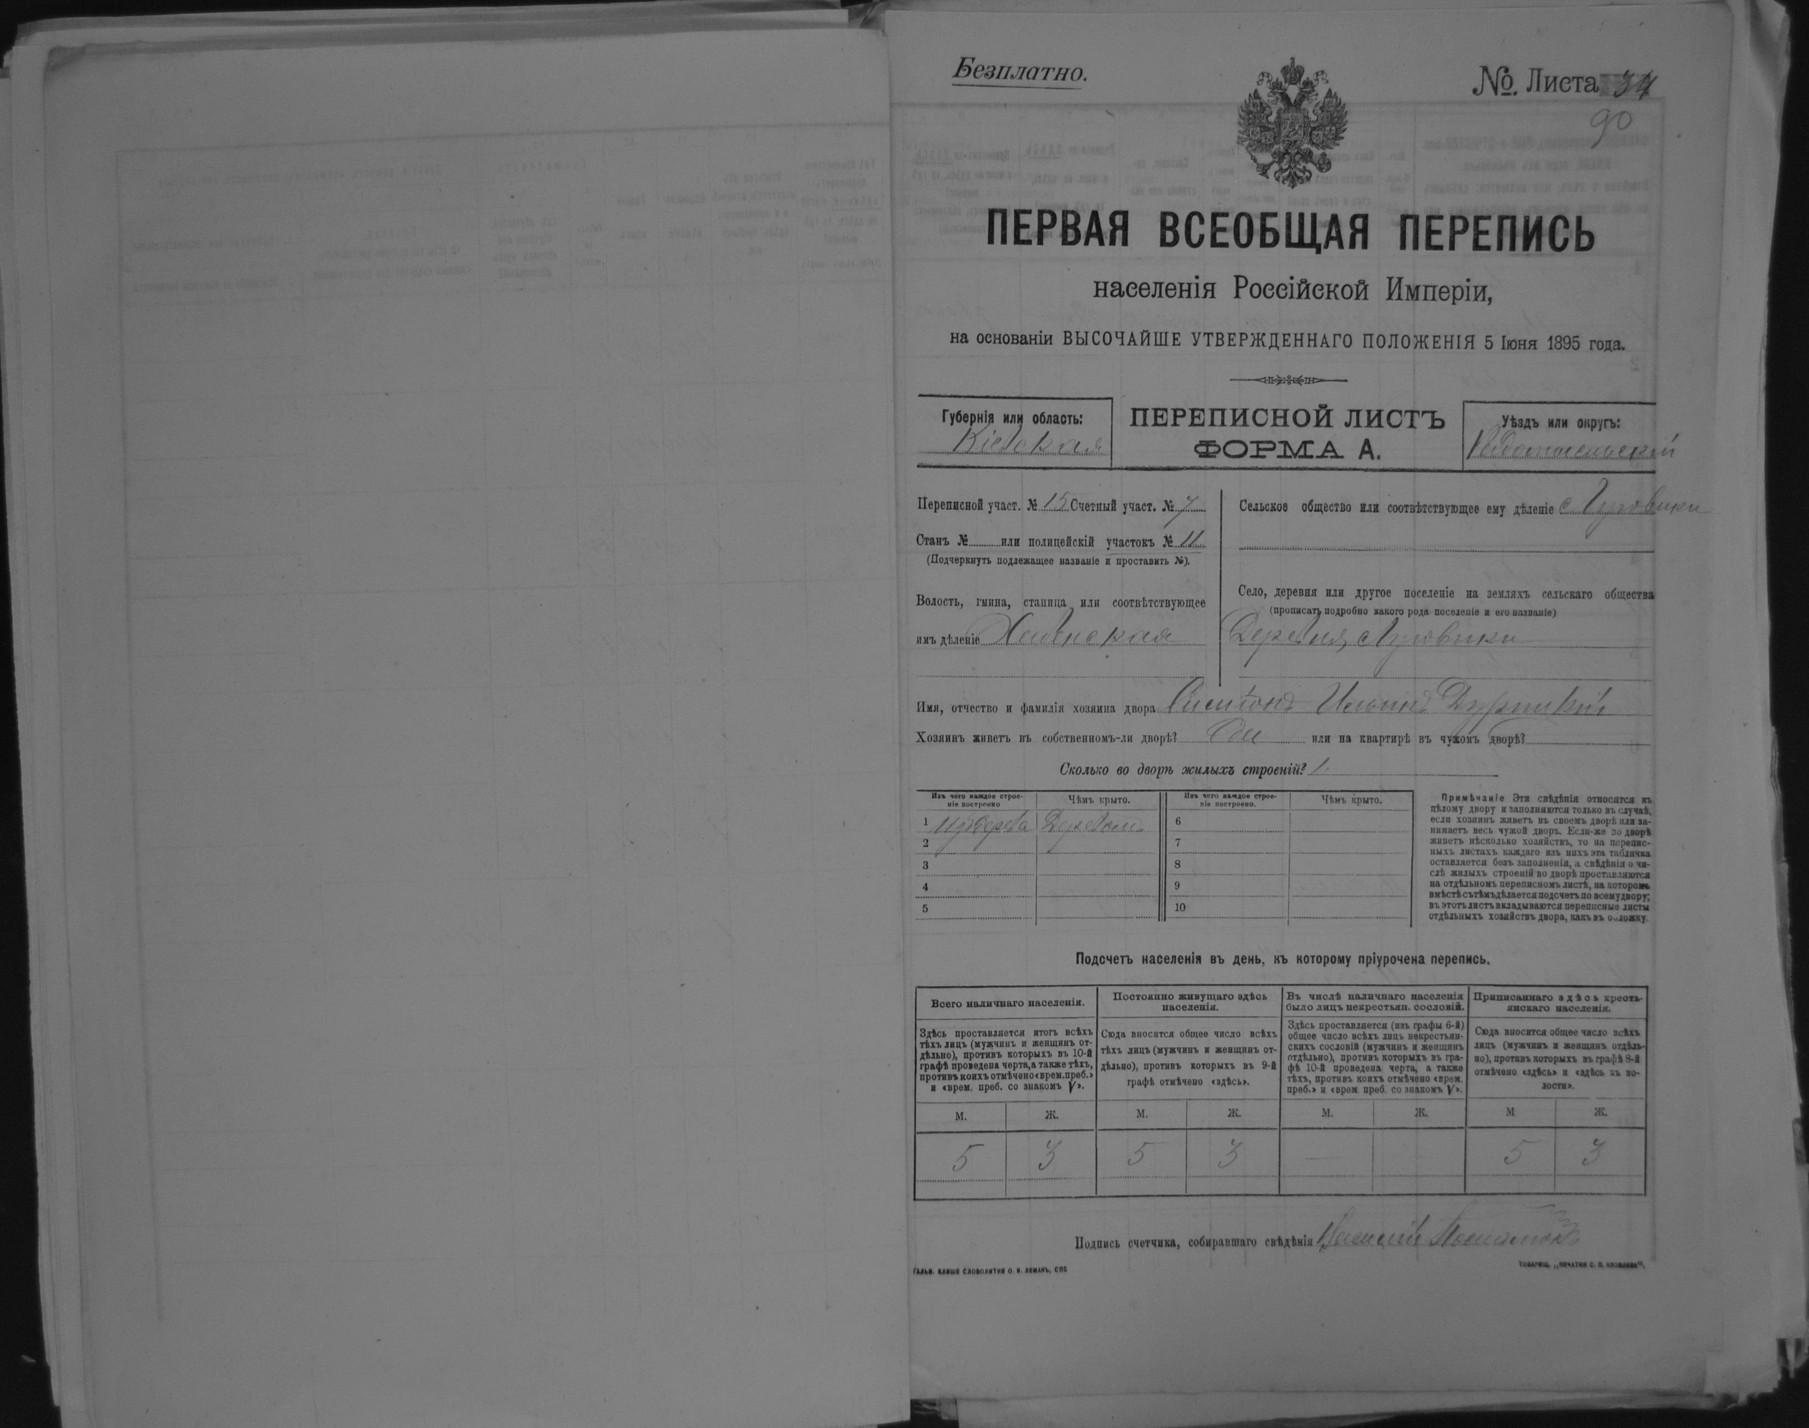 Безплатно.
№. Листа 34
90
ПЕРВАЯ ВСЕОБЩАЯ ПЕРЕПИСЬ
населенія Россійской Имперіи,
на основаніи ВЫСОЧАЙШЕ УТВЕРЖДЕННАГО ПОЛОЖЕНІЯ 5 Іюня 1895 года.
Губернія или область:
Кіевская
ПЕРЕПИСНОЙ ЛИСТЪ
ФОРМА А.
Уѣздъ или округъ:
Радомысльскій
Переписной участ. № 15 Счетный участ. № 7
Станъ № или полицейскій участокъ № 11
(Подчеркнуть подлежащее названіе и проставить №).
Волость, гмина, станица или соотвѣтствующее
имъ дѣленіе Хабенская
Сельское общество или соотвѣтствующее ему дѣленіе с Луговики
Село, деревня или другое поселеніе на земляхъ сельскаго общества
(прописать подробно какого рода поселеніе и его названіе)
Деревня Луговики
Имя, отчество и фамилія хозяина двора Симеонъ Ильинъ
Хозяинъ живетъ въ собственномъ-ли дворѣ? или на квартирѣ въ чужомъ дворѣ?
Сколько во дворѣ жилыхъ строеній? 1
Изъ чего каждое строе-
ніе построено
Чѣмъ крыто.
Изъ чего каждое строе-
ніе построено.
Чѣмъ крыто.
1 Изъ дерева Деревом
2
3
4
5
6
7
8
9
10
Примѣчаніе Эти свѣдѣнія относятся къ
цѣлому двору и заполняются только въ случаѣ,
если хозяинъ живетъ въ своемъ дворѣ или за-
нимаетъ весь чужой дворъ. Если-же во дворѣ
живетъ нѣсколько хозяйствъ, то на перепис-
ныхъ листахъ каждаго изъ нихъ эта табличка
оставляется безъ заполненія, а свѣдѣнія о чи-
слѣ жилыхъ строеній во дворѣ проставляются
на отдѣльномъ переписномъ листѣ, на которомъ
вмѣстѣ съ тѣмъ дѣлается подсчетъ по всему двору;
въ этотъ листъ вкладываются переписные листы
отдѣльныхъ хозяйствъ двора, какъ въ обложку.
Подсчетъ населенія въ день, къ которому пріурочена перепись.
Всего наличнаго населенія.
Здѣсь проставляется итогъ всѣхъ
тѣхъ лицъ (мужчинъ и женщинъ от-
дѣльно), противъ которыхъ въ 10-й
графѣ проведена черта, а также тѣхъ,
противъ коихъ отмѣчено «врем. преб.»
и «врем. преб. со знакомъ V».
Постоянно живущаго здѣсь
населенія.
Сюда вносится общее число всѣхъ
тѣхъ лицъ (мужчинъ и женщинъ от-
дѣльно), противъ которыхъ въ 9-й
графѣ отмѣчено «здѣсь».
Въ числѣ наличнаго населенія
было лицъ некрестьян. сословій.
Здѣсь проставляется (изъ графы 6-й)
общее число всѣхъ лицъ некрестьян-
скихъ сословій (мужчинъ и женщинъ
отдѣльно), противъ которыхъ въ гра-
фѣ 10-й проведена черта, а также
тѣхъ, противъ коихъ отмѣчено «врем.
преб.» и «врем. преб. со знакомъ V».
Приписаннаго здѣсь кресть-
янскаго населенія.
Сюда вносится общее число всѣхъ
лицъ (мужчинъ и женщинъ отдѣль-
но), противъ которыхъ въ графѣ 8-й
отмѣчено «здѣсь» и «здѣсь въ во-
лости».
М. Ж. М. Ж. М. Ж. М Ж.
5 3 5 3 — — 5 3
Подпись счетчика, собиравшаго свѣдѣнія Василій
ГАЛЬВ. КЛИШЕ СЛОВОЛИТНИ О. И. ЛЕМАНЪ, СПБ
ТОВАРИЩ. „ПЕЧАТНЯ С. П. ЯКОВЛЕВА“.